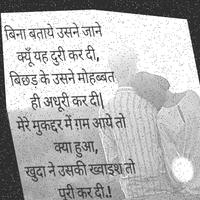 बिना बताये उसने जाने
क्यूँ यह दुरी कर दी,
बिछड़ के उसने मोहब्बत
ही अधूरी कर दी|
मेरे मुकद्दर में ग़म आये तो
क्या हुआ,
खुदा ने उसकी ख्वाइश तो
पूरी कर दी.!